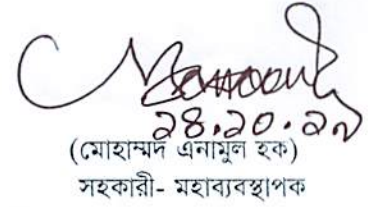 ২৪.১০.১৭
(মোহাম্মদ এনামুল হক)
সহকারী- মহাব্যবস্থাপক